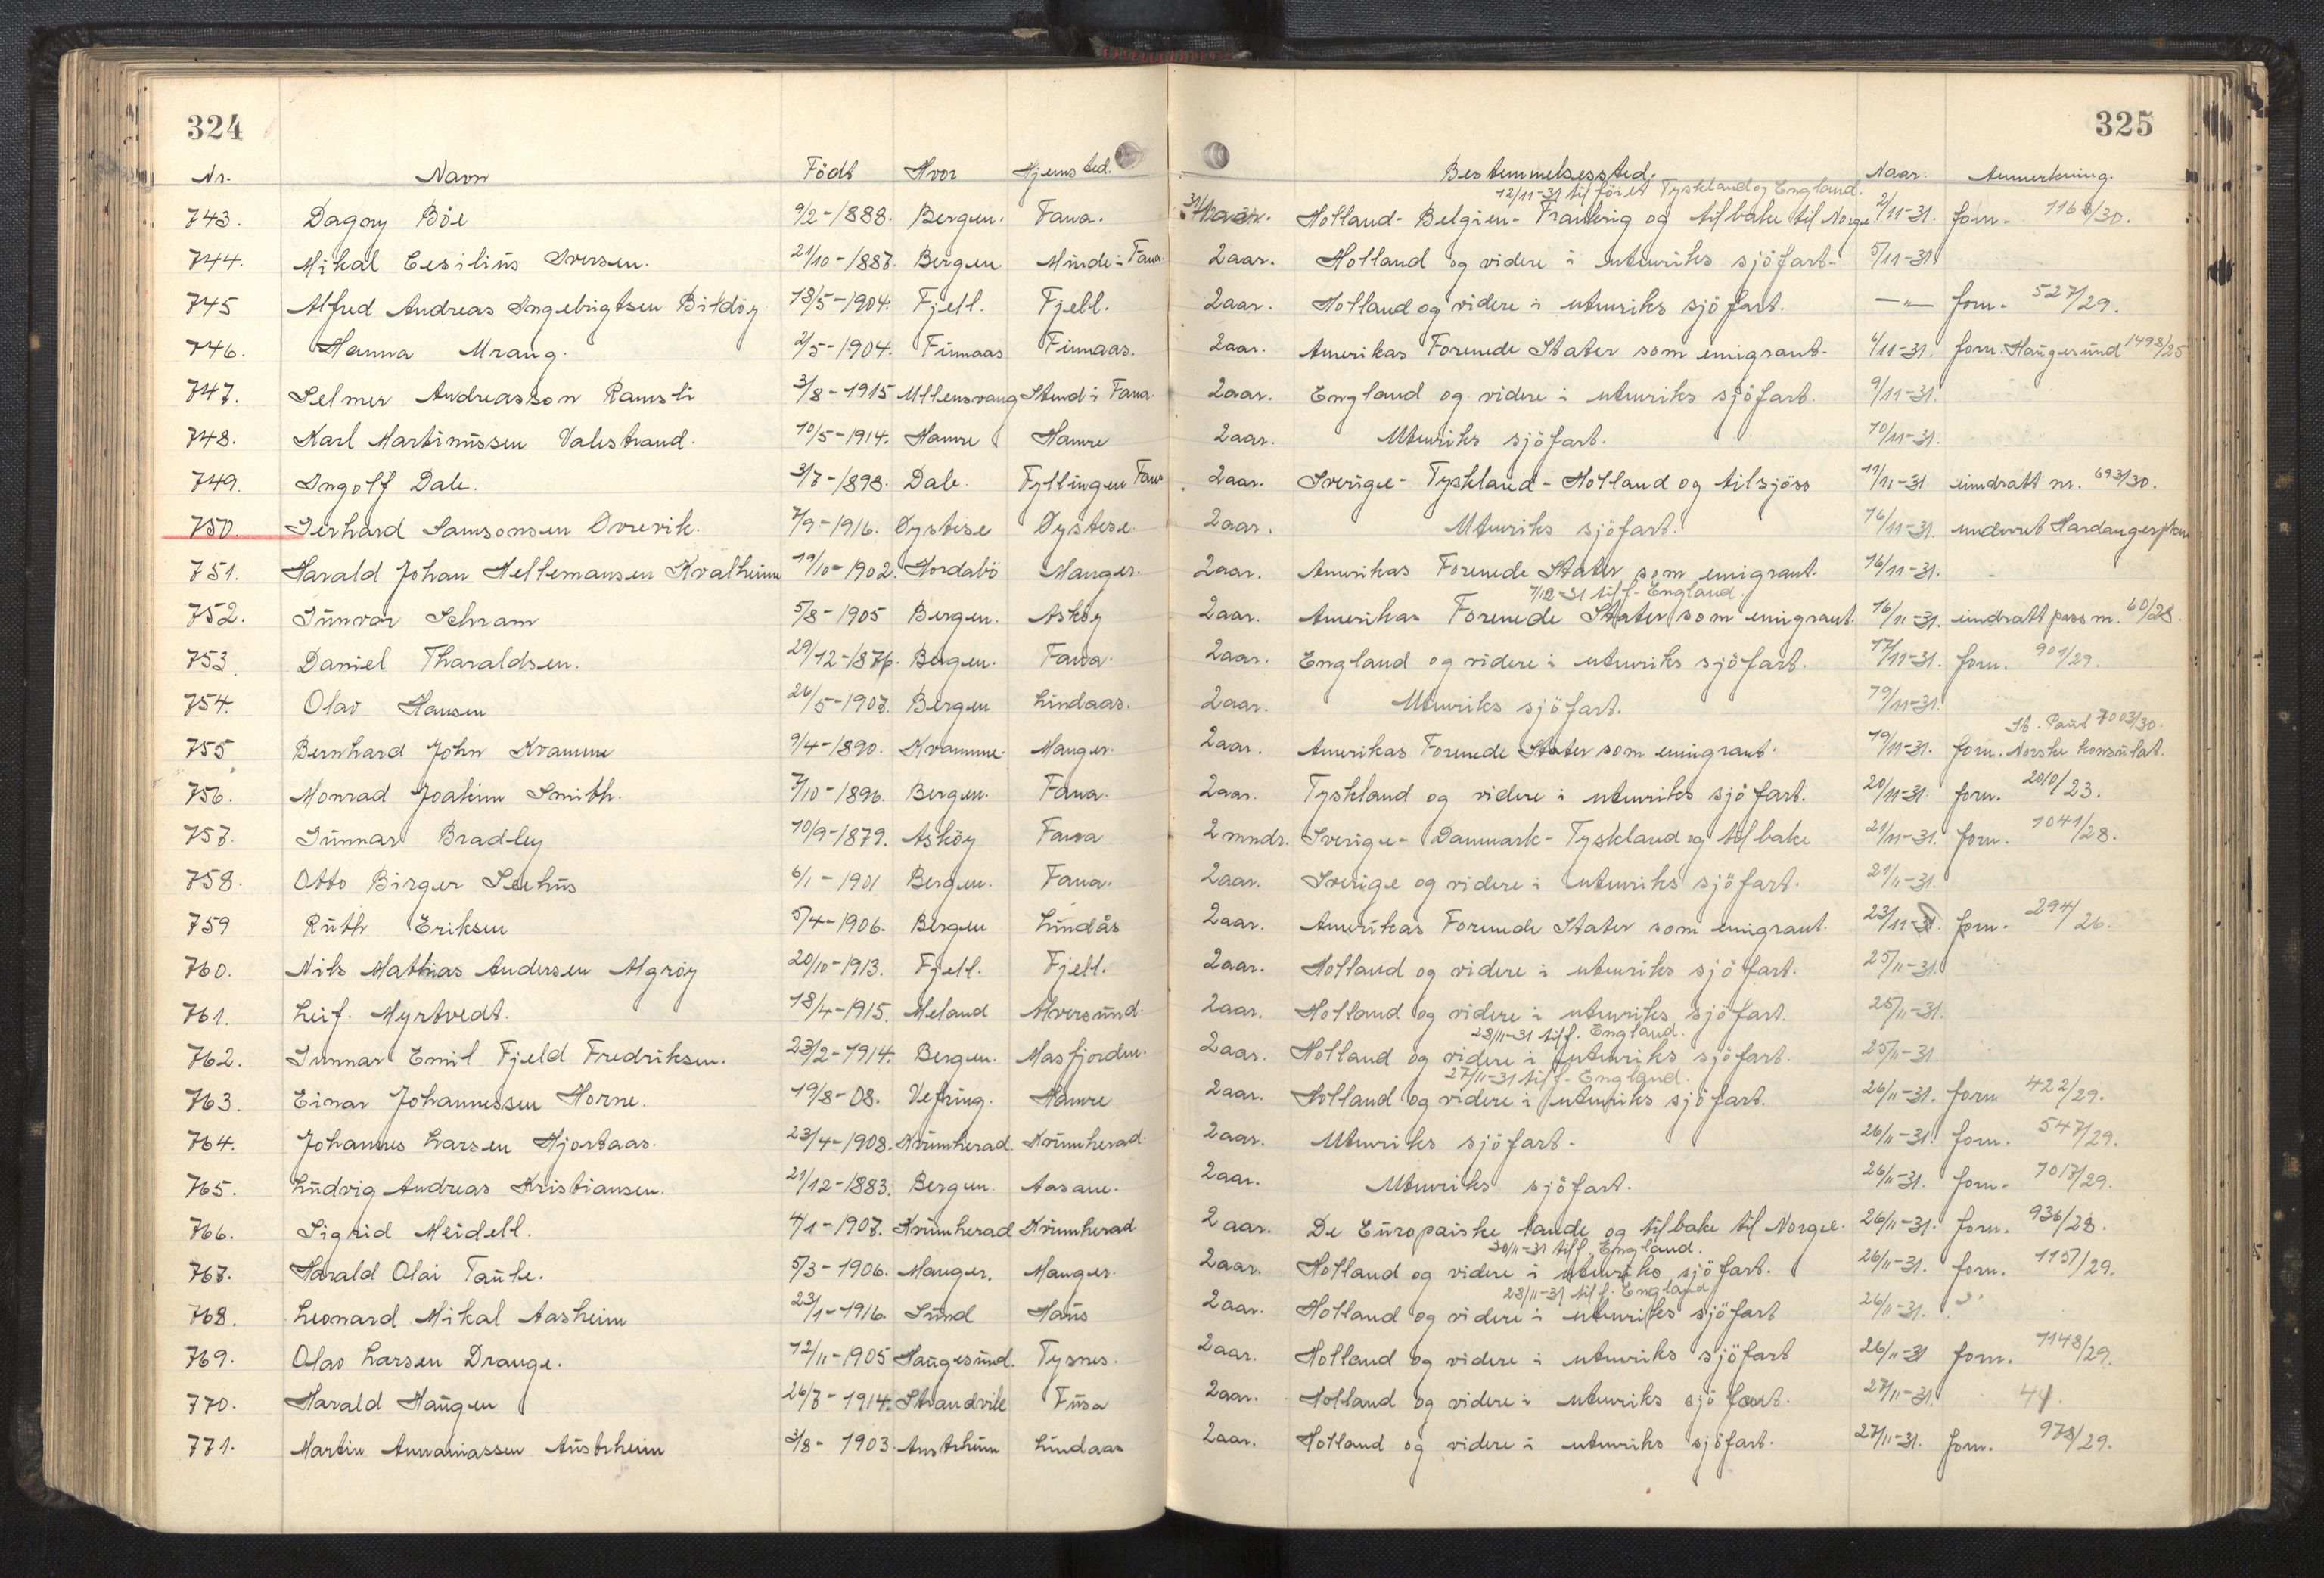 324
325
Nr. Navn Födt Hvor Hjemsted. Bestemmelsessted. Naar. Anmerkning.
12/11-31 tilföiet Tyskland og England.
743. Dagny Böe 9/2-1888. Bergen. Fana. Holland- Belgien- Frankrig og tilbake til Norge 2/11-31. forn. 1168/30.
744. Mikal Cesilius Iversen. 21/10-1887. Bergen. Minde i Fana. 2 aar. Holland og videre i utenriks sjöfart- 5/11-31.
745 Alfred Andreas Ingebrigtsen Bildöy 18/5-1904. Fjell. Fjell. 2 aar. Holland og videre i utenriks sjöfart. —"— forn. 527/29.
746. Hanna Urang. 2/5-1904. Finnaas Finnaas. 2 aar. Amerikas Forenede Stater som emigrant- 6/11-31. forn. Haugesund 1498/25
747. Selmer Andreasson Ramsli 3/8-1915 Ullensvang Stend i Fana. 2 aar. England og videre i utenriks sjöfart. 9/11-31.
748. Karl Martinussen Valestrand. 10/5-1914. Hamre Hamre 2 aar. Utenriks sjöfart. 10/11-31.
749. Ingolf Dale. 3/7-1898. Dale. Fyllingen Fana 2 aar. Sverige- Tyskland- Holland og tilsjöss 11/11-31 inndratt nr. 693/30.
750. Gerhard Samsonsen Övrevik. 7/9-1916. Öystese Öystese. 2 aar. Utenriks sjöfart. 16/11-31.
751. Harald Johan Hellemansen Kvalheim 19/10-1902. Hordabö Manger. 2 aar. Amerikas Forenede Stater som emigrant. 16/11-31.
7/12-31 tilf. England.
752. Gunvor Schram 5/8-1905 Bergen. Asköy 2 aar. Amerikas Forenede Stater som emigrant. 16/11-31. inndratt pass nr. 60/28.
753. Daniel Tharaldsen. 29/12-1876. Bergen. Fana. 2 aar. England og videre i utenriks sjöfart. 17/11-31. forn. 901/29.
754. Olav Hansen 26/5-1907. Bergen Lindaas. 2 aar. Utenriks sjöfart. 19/11-31.
St. Paul 7003/30.
755 Bernhard John Kvamme 9/4-1890. Kvamme. Manger. 2 aar. Amerikas Forenede Stater som emigrant. 19/11-31. forn. Norske konsulat.
756. Monrad Joakim Smith. 7/10-1896. Bergen. Fana. 2 aar. Tyskland og videre i utenriks sjöfart. 20/11-31. forn. 2010/23.
757. Gunnar Bradley 10/9-1879. Asköy Fana 2 mndr. Sverige- Danmark- Tyskland og tilbake 21/11-31. forn. 1041/28.
758. Otto Birger Seehus 6/1-1901 Bergen. Fana. 2 aar. Sverige og videre i utenriks sjöfart. 21/11-31.
759 Ruth Eriksen 5/4-1906. Bergen Lindås 2 aar. Amerikas Forenede Stater som emigrant. 23/11-31. forn. 294/26.
760. Nils Mathias Andersen Algröy 20/10-1913. Fjell. Fjell. 2 aar. Holland og videre i utenriks sjöfart. 25/11-31.
761. Leif. Myrtvedt. 18/4-1915. Meland Alversund. 2 aar. Holland og videre i utenriks sjöfart. 25/11-31.
28/11-31 tilf. England.
762. Gunnar Emil Fjeld Fredriksen. 23/2-1914. Bergen. Masfjorden. 2 aar. Holland og videre i utenriks sjöfart. 25/11-31.
27/11-31 tilf. England.
763. Einar Johannessen Horne. 19/8-08. Vefring. Hamre 2 aar. Holland og videre i utenriks sjöfart. 26/11-31. forn 422/29.
764. Johannes Larsen Hjortaas. 23/4-1908. Kvinnherad. Kvinnherad. 2 aar. Utenriks sjöfart. 26/11-31. forn. 547/29.
765. Ludvig Andreas Kristiansen. 21/12-1883. Bergen. Aasane. 2 aar. Utenriks sjöfart. 26/11-31. forn. 1017/29.
766. Sigrid Meidell. 4/1-1907. Kvinnherad Kvinnherad 2 aar. De Europaiske lande og tilbake til Norge. 26/11-31. forn. 936/28.
30/11-31 tilf. England.
767. Harald Olai Taule. 5/3-1906. Manger. Manger. 2 aar. Holland og videre i utenriks sjöfart. 26/11-31. forn. 1157/29.
28/11-31 tilf. England
768. Leonard Mikal Aasheim 23/1-1916. Sund Haus 2 aar. Holland og videre i utenriks sjöfart 26/11-31.
769. Olav Larsen Drange. 12/11-1905 Haugesund. Tysnes. 2 aar. Holland og videre i utenriks sjöfart 26/11-31 forn. 1148/29.
770. Harald Haugen 26/7-1914. Strandvik Fusa 2 aar. Holland og videre i utenriks sjöfart. 27/11-31.
771. Martin Annaniassen Austrheim 3/8-1903. Austrheim Lindaas 2 aar. Holland og videre i utenriks sjöfart. 27/11-31. forn. 978/29.